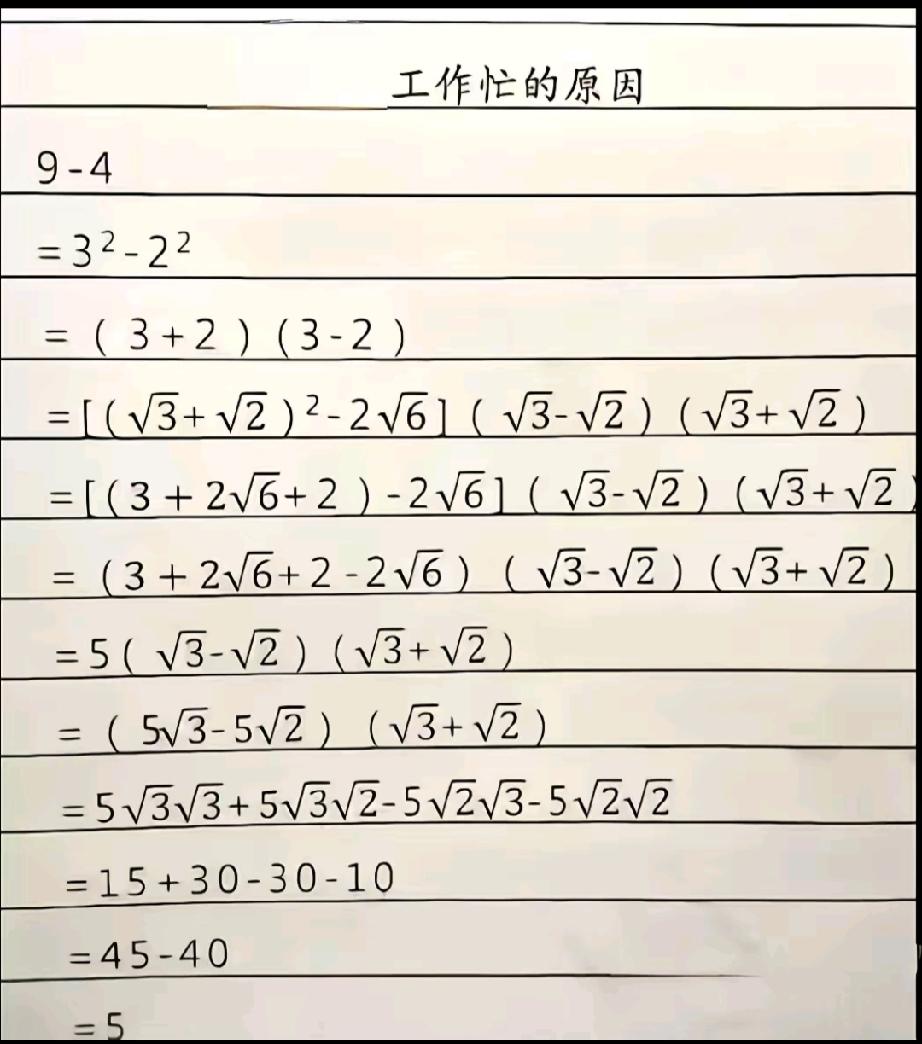 工作忙的原因
9-4
=3²-2²
=(3+2)(3-2)
=[(√3+√2)²-2√6](√3-√2)(√3+√2)
=[(3+2√6+2)-2√6](√3-√2)(√3+√2)
=(3+2√6+2-2√6)(√3-√2)(√3+√2)
=5(√3-√2)(√3+√2)
=(5√3-5√2)(√3+√2)
=5√3√3+5√3√2-5√2√3-5√2√2
=15+30-30-10
=45-40
=5